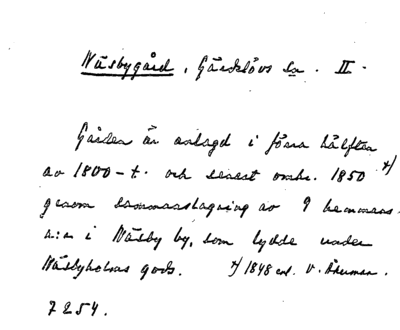 Näsbygård, Gärdslövs Sn. II.
Gården är anlagd i förra hälften
av 1800-t. och senast omkr. 1850 */
genom sammanslagning av 9 hemmans-
n:n i Näsby by, som lydde under
Näsbyholms gods. */ 1848 enl. V. Åkerman.
7254.